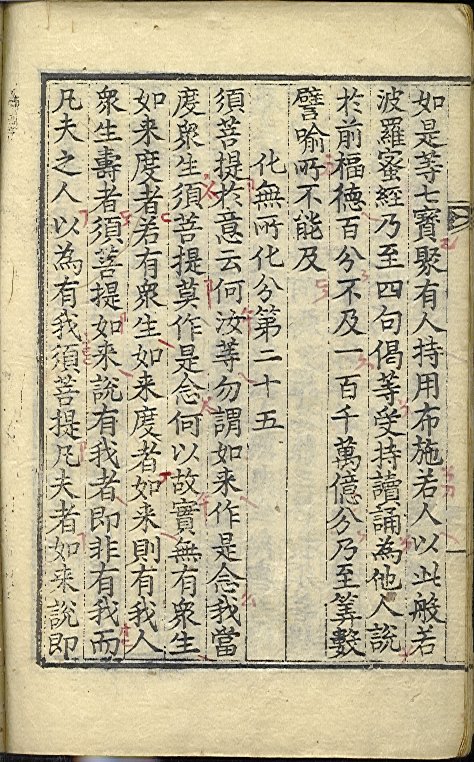 如是等七寳聚有人持用布施若人以此般若
波羅蜜經乃至四句偈等受持讀誦為他人說
於前福德百分不及一百千萬億分乃至筭數
譬喻所不能及
化無所化分第二十五
須菩提於意云何汝等勿謂如来作是念我當
度衆生須菩提莫作是念何以故實無有衆生
如来度者若有衆生如来度者如来則有我人
衆生壽者須菩提如来說有我者即非有我而
凡夫之人以為有我須菩提凡夫者如来說即